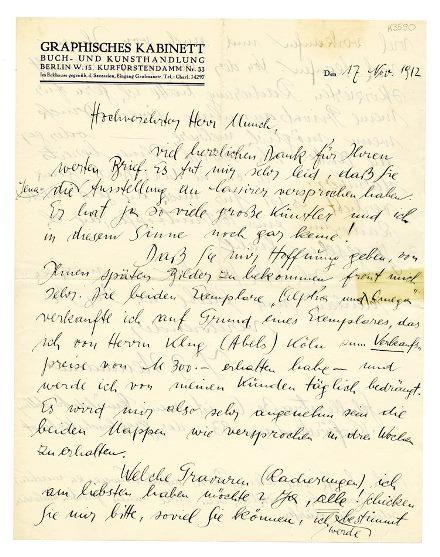 K3590
GRAPHISCHES KABINETT
BUCH- UND KUNSTHANDLUNG
BERLIN W. 15, KURFÜRSTENDAMM Nr. 33
Im Eckhause gegenüb. d. Secession, Eingang Grolmanstr. Tel.: Charl. 14297
Den 17 Nov. 1912
Hochverehrter Herr Munch,
viel herzlichen Dank für Ihren
werten Brief. Es tut mir sehr leid, daß Sie
Jena-
die Ausstellung an Cassirer versprochen haben.
Er hat ja so viele große Künstler und ich
in diesem Sinne noch gar keine!
Daß Sie mir Hoffnung geben, von
Ihnen später Bilder zu bekommen freut mich
sehr. Die beiden Exemplare „Alpha und Omega"
verkaufte ich auf Grund eines Exemplares, das
ich von Herrn Klug (Abels) Köln zum Verkaufs
preise von M 300.– erhalten habe – und
werde ich von meinen Kunden täglich bedrängt.
Es wird mir also sehr angenehm sein die
beiden Mappen wie versprochen in drei Wochen
zu erhalten.
Welche Gravuren (Radierungen) ich
am liebsten haben möchte? Ja, alle! Schicken
Sie mir bitte, soviel Sie können, ich bestimmt
werde